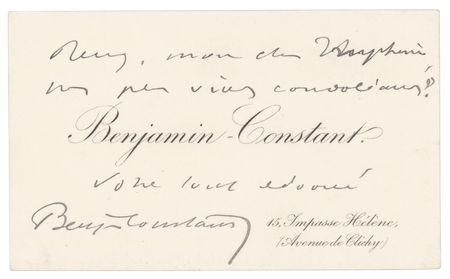 mon cher
nos plus vives condoléances
Benjamin-Constant.
Votre tout dévoué
Benj-Constant
15, Impasse Hélène,
(Avenue de Clichy)